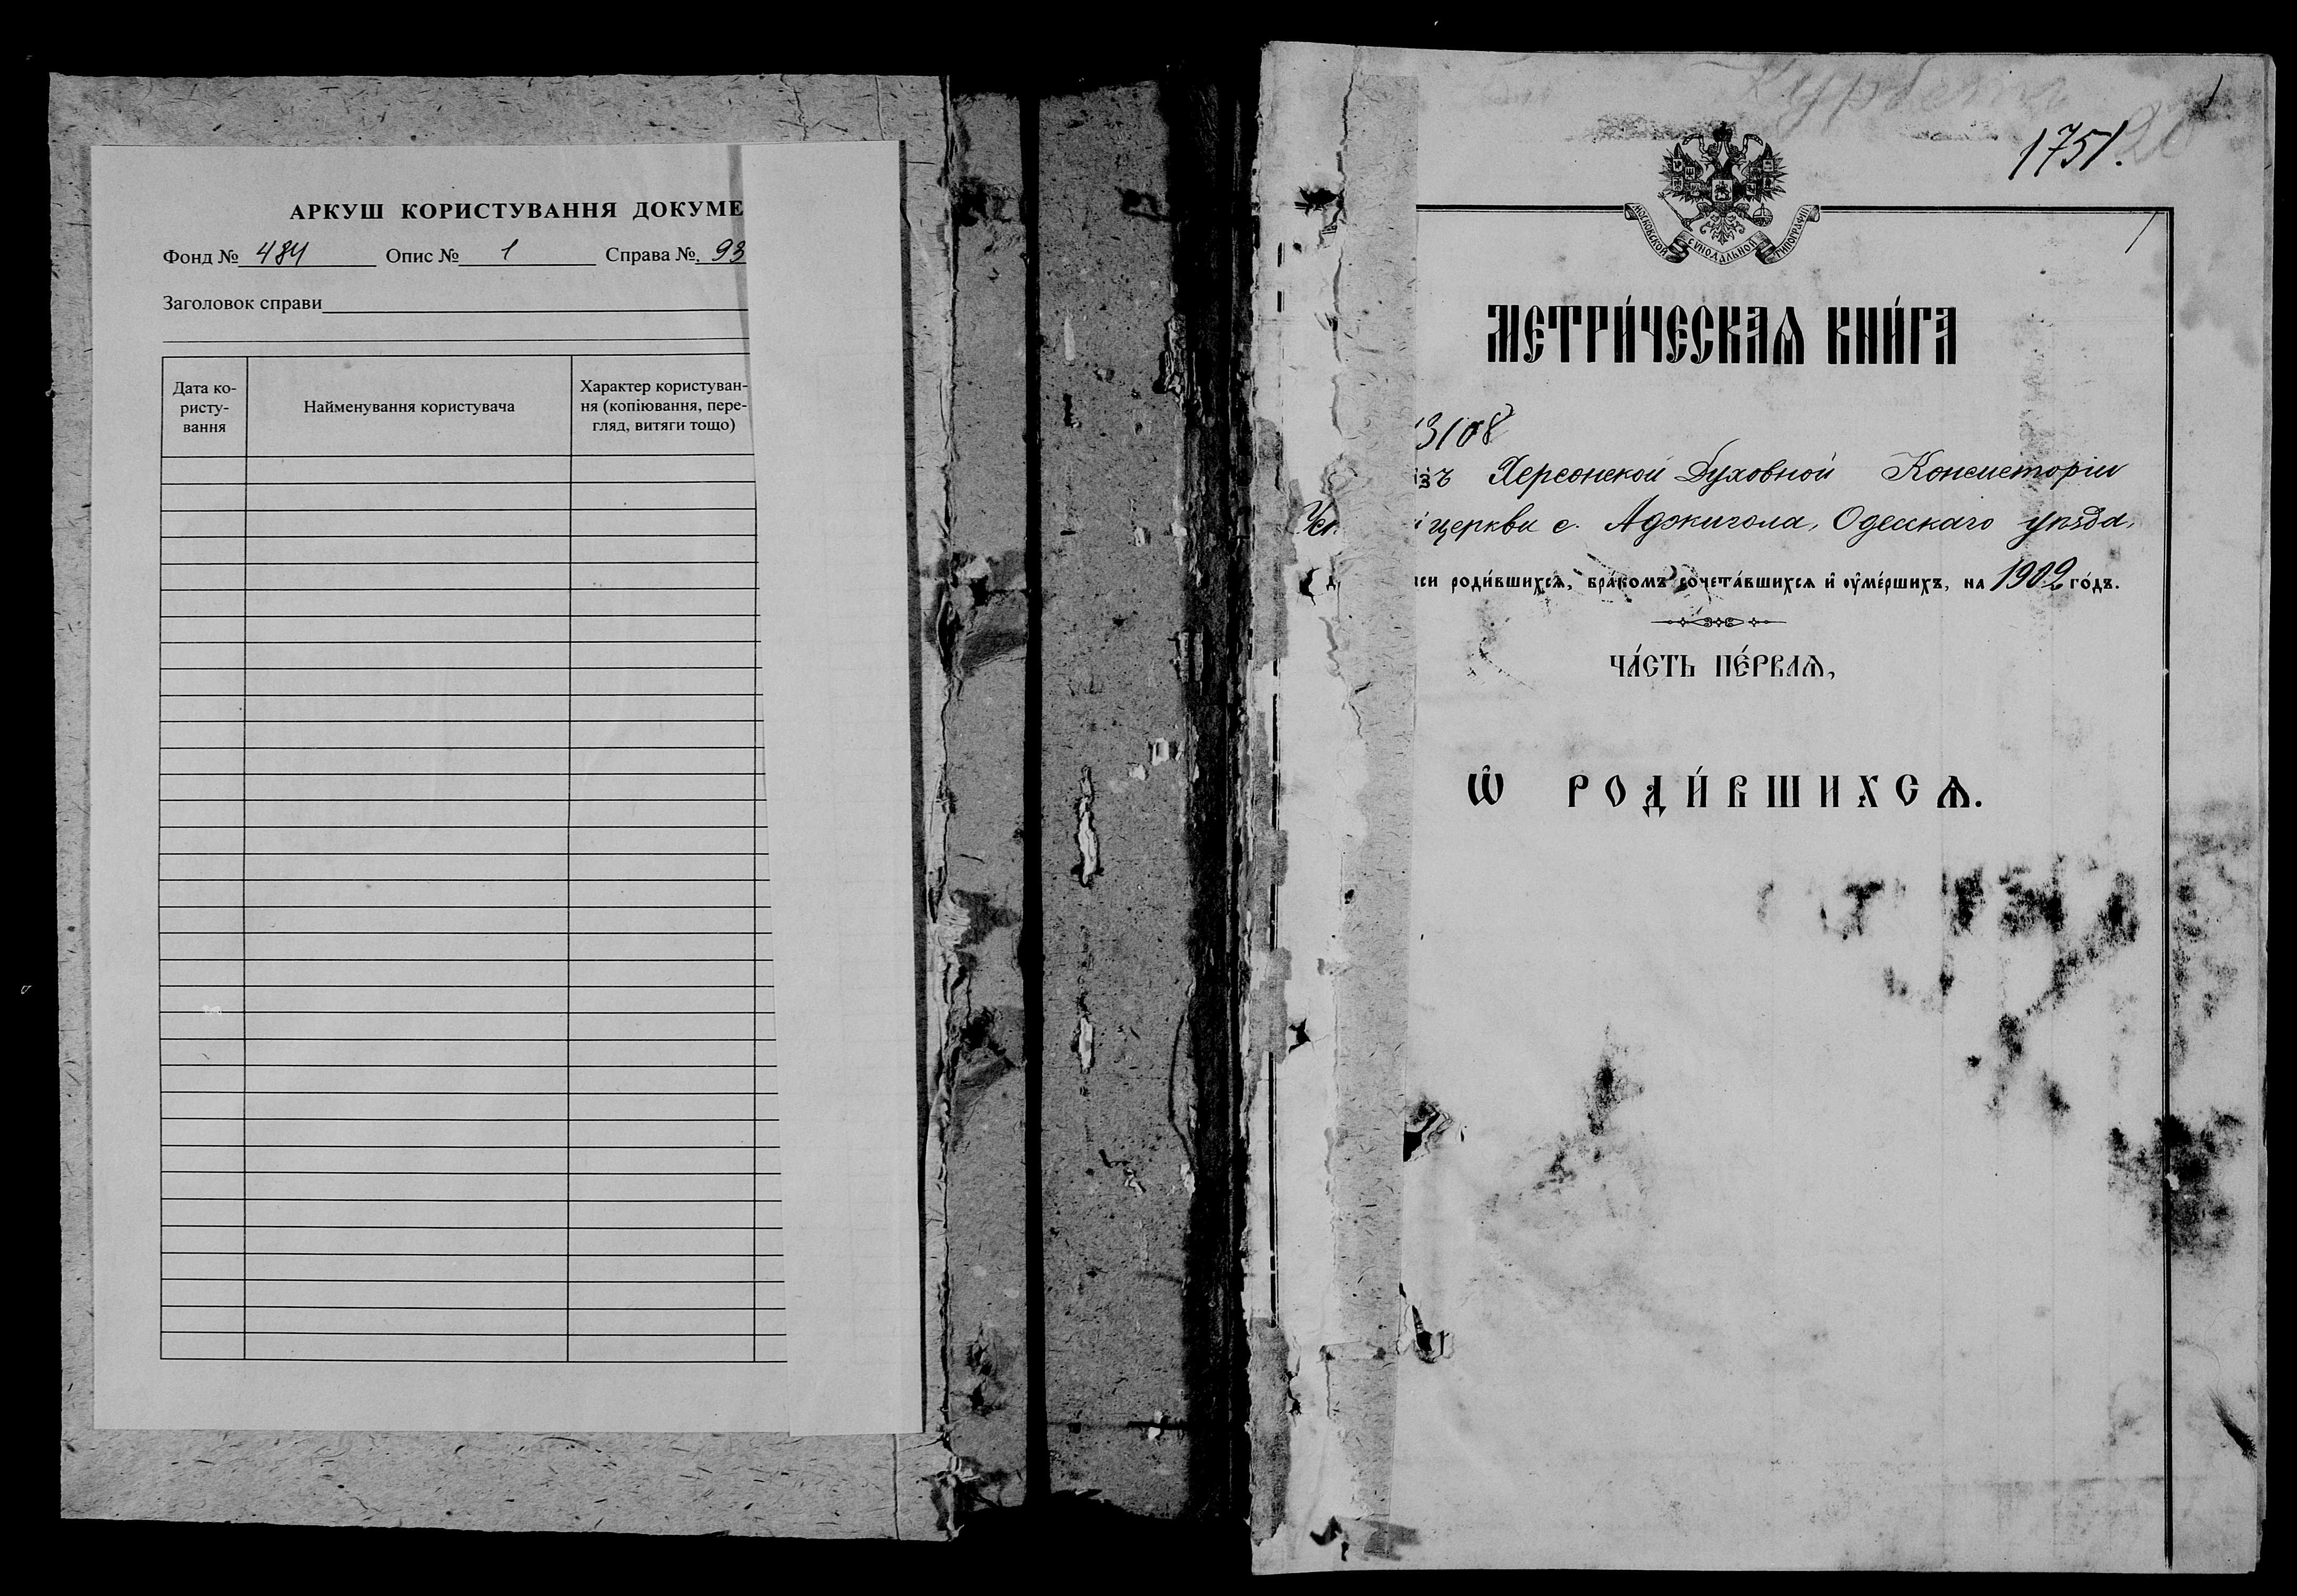 АРКУШ КОРИСТУВАННЯ ДОКУМЕ
Фонд № 484 Опис № 1 Справа № 93
Заголовок справи
Дата ко-
ристу-
вання
Найменування користувача
Характер користуван-
ня (копіювання, пере-
гляд, витяги тощо)
1751.
МОСКОВСКОЙ СѴНОДАЛЬНОЙ ТИПОГРАФІИ
МЕТРИ́ЧЕСКАѦ КНИ́ГА
13108
изъ Херсонской Духовной Консисторіи
церкви с. Аджигола, Одесскаго уѣзда,
роди́вшихсѧ, бра́комъ сочета́вшихсѧ и҆ ѹ҆ме́ршихъ, на 1902 го́дъ.
ЧА́СТЬ ПЕ́РВАѦ,
Ѡ҆ РОДИ́ВШИХСѦ.